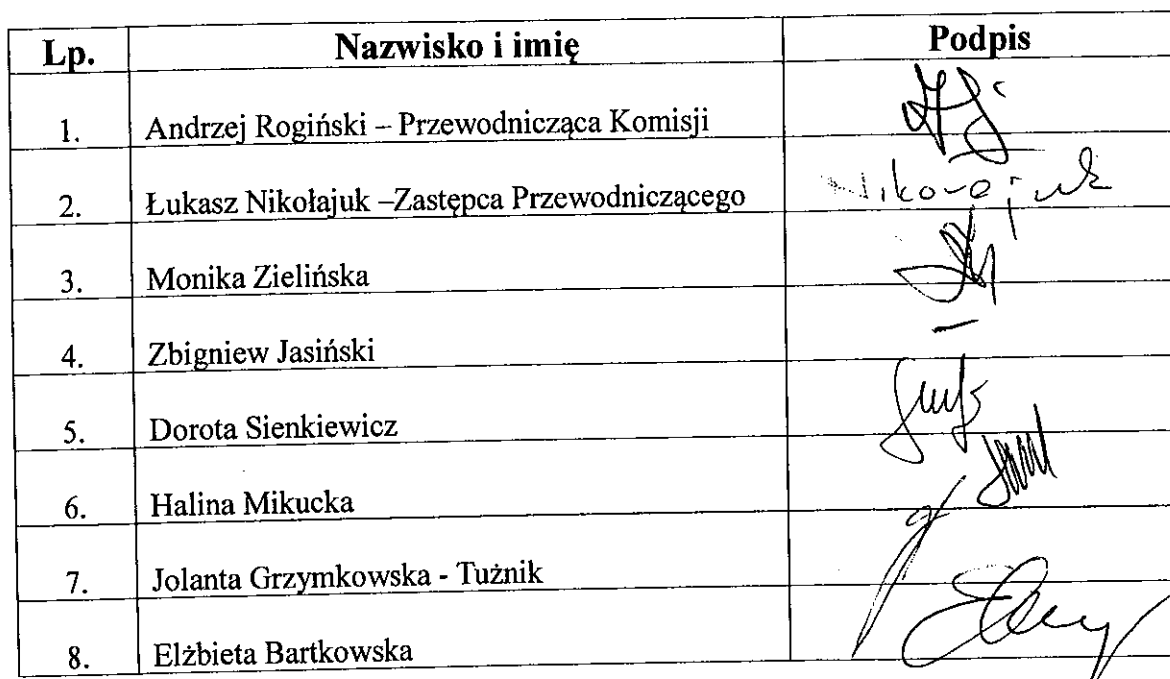 Lp. Nazwisko i imię Podpis
1. Andrzej Rogiński – Przewodnicząca Komisji
2. Łukasz Nikołajuk –Zastępca Przewodniczącego
3. Monika Zielińska
4. Zbigniew Jasiński –
5. Dorota Sienkiewicz
6. Halina Mikucka
7. Jolanta Grzymkowska - Tużnik
8. Elżbieta Bartkowska